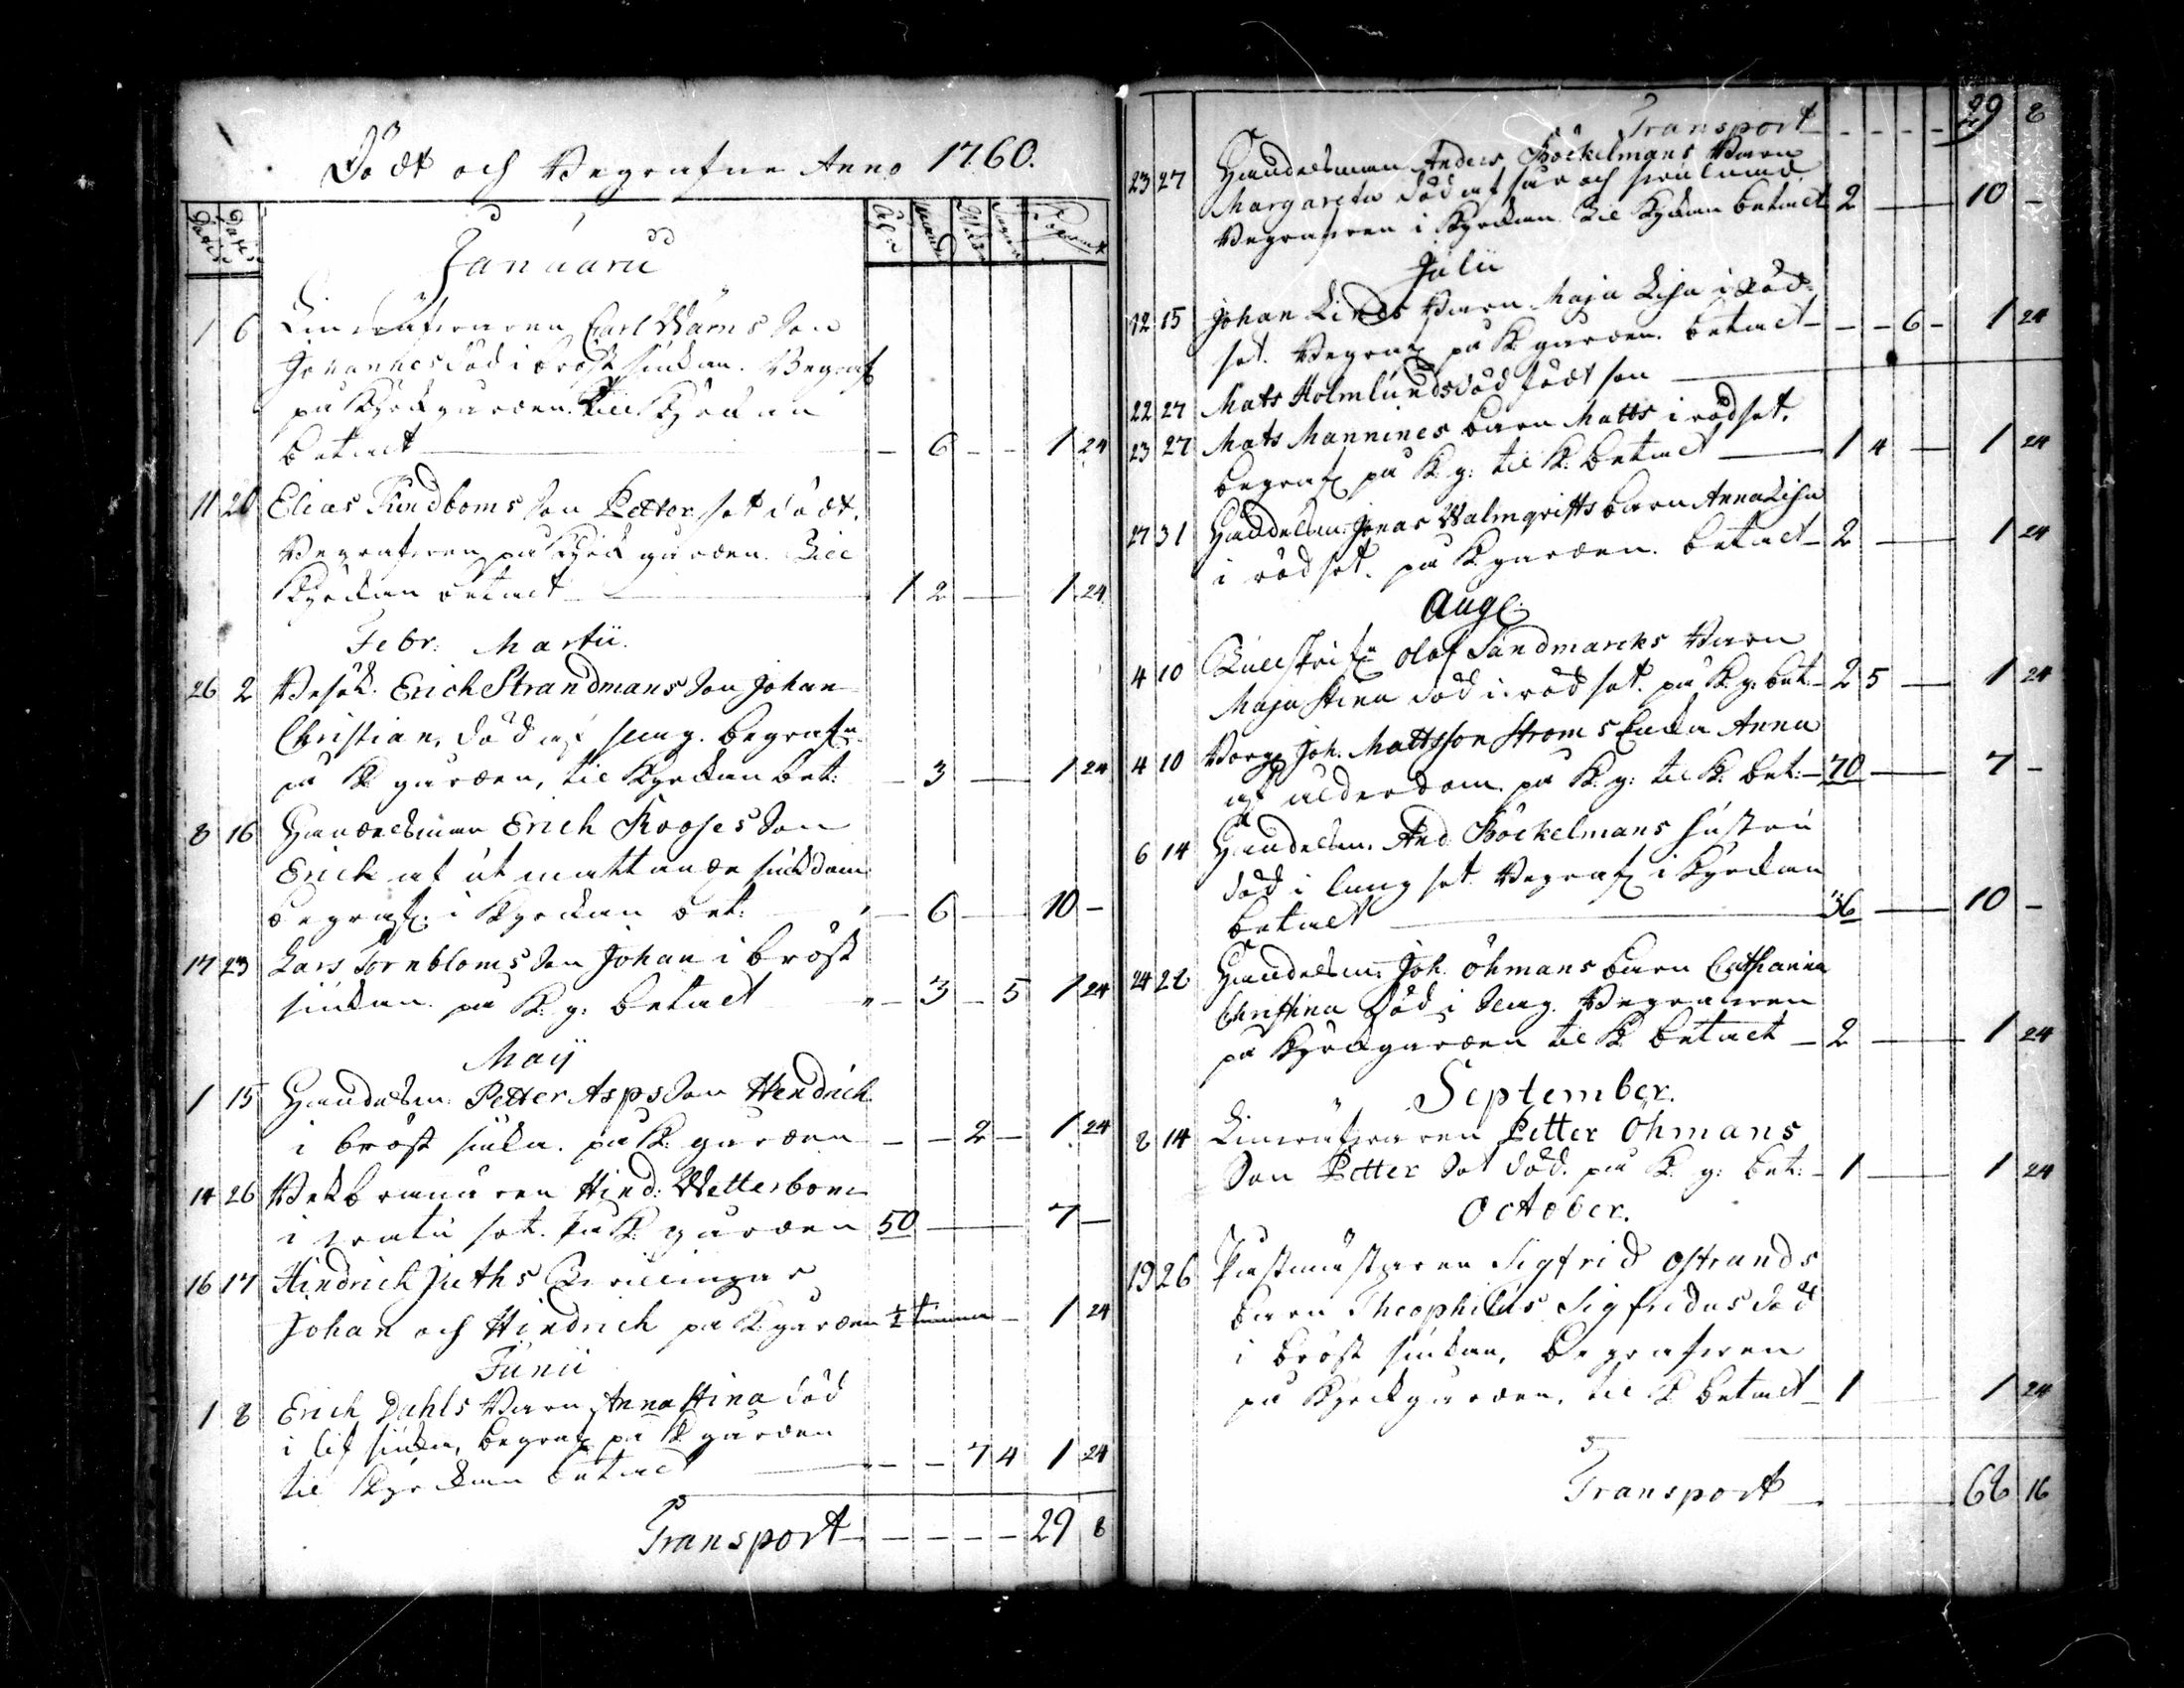 Död och Begrafne Anno 1760.
Januarii
1 6 Linväfvaren Carl Wärns Son
Johannes död i bröst siukan. Begraf
på Kyrkgården. till Kyrkan
betalt — 6 — — 1 24
11 20 Elias Sundboms Son Petter hot död.
Begrafven på Kyrkgården. Till
Kyrkan betalt — 1 2 — 1 24
Febr: Martii.
26 2 Besök. Erich Strandmans Son Johan
Christian, död af slag. begrafn
på K. gården, til Kyrkan bet: — 3 — 1 24
8 16 Handelsman Erich Rooses Son
Erich af utmattande siukdom
begraf. i Kyrkan bet: — 6 — 10 —
17 23 Lars Törnbloms Son Johan i bröst
siukan. på K: g: betalt — 3 — 5 1 24
Maij
1 15 Handelsm: Petter Asps Son Hendrich
i bröst siuka. på K: gården — — 2 — 1 24
14 26 Hind: Wetterbom
i hot. på K: gården 50 — 7 —
16 17 Hindrich Juths
Johan och Hindrich på K: gården ½ timma — 1 24
Junii
1 8 Erich Dahls Barn Anna Stina död
i lif siukan, begraf på K. gården
til Kyrkan betalt — — 7 4 1 24
Transport — — — — 29 8
Transport — — — — 29 8
23 27 Handelsman Anders Böckelmans Barn
Margareta död af
Begrafven i Kyrkan. Til Kyrkan betalt 2 — 10 —
Julii
12 15 Johan Linds Barn Maja Lisa i Röd-
sot. Begraf på K: gården. betalt — — 6 — 1 24
22 27 Mats Holmlunds död född son —
23 27 Mats Mannines barn Matts i rödsot.
begraf på K. g: til K: betalt — 1 4 — 1 24
27 31 Handelsm: Jonas Walmqvists barn Anna Lisa
i rödsot. på K gården. betalt — 2 — 1 24
Aug:
4 10 Olof Sandmarcks Barn
Maja Stina död i rödsot. på K. g: bet — 2 5 — 1 24
4 10 Borg. Joh. Mattsson Ströms Enka Anna
af ålderdom. på K. g: til K: bet: — 70 — 7 —
6 14 Handelsm. And. Böckelmans hustru
död i lungsot. Begraf i Kyrkan
betalt — 36 — 10 —
24 28 Handelsm: Joh. Öhmans barn Catharina
Christina Död i slag. Begrafven
på Kyrkgården til K betalt — 2 — 1 24
September.
8 14 Linväfvaren Petter Öhmans
Son Petter död. på K. g: bet: — 1 — 1 24
October.
19 26 Postmästaren Sigfrid Östrands
barn Theophilus Sigfridus död
i bröst siukan, begrafven
på Kyrkgården, til K betalt — 1 — 1 24
Transport — 68 16